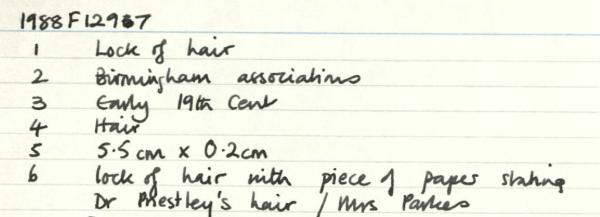 1988 F 12937
1 Lock of hair
2 Birmingham associations
3 Early 19th Cent
4 Hair
5 5.5cm x 0.2cm
6 lock of hair with piece of paper stating
Dr Priestley's hair / Mrs Parkes